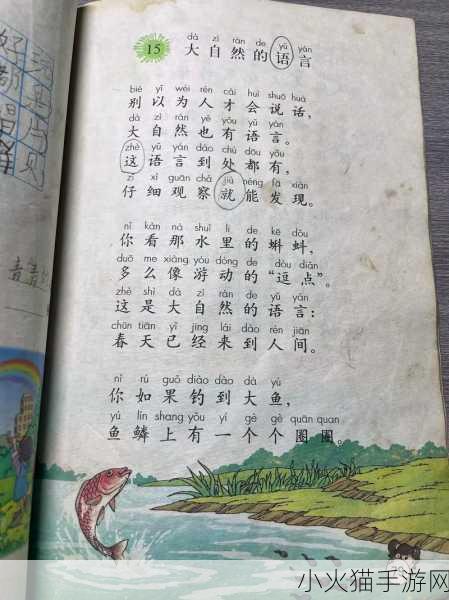 15
dà zì rán de yǔ yán
大自然的语言
bié yǐ wéi rén cái huì shuō huà
别以为人才会说话，
dà zì rán yě yǒu yǔ yán
大自然也有语言。
zhè yǔ yán dào chù dōu yǒu
这语言到处都有，
zǐ xì guān chá jiù néng fā xiàn
仔细观察就能发现。
nǐ kàn nà shuǐ lǐ de kē dǒu
你看那水里的蝌蚪，
duō me xiàng yóu dòng de dòu diǎn
多么像游动的“逗点”。
zhè shì dà zì rán de yǔ yán
这是大自然的语言：
chūn tiān yǐ jīng lái dào rén jiān
春天已经来到人间。
nǐ rú guǒ diào dào dà yú
你如果钓到大鱼，
yú lín shang yǒu yí gè gè quān quan
鱼鳞上有一个个圈圈。
小火猫手游网